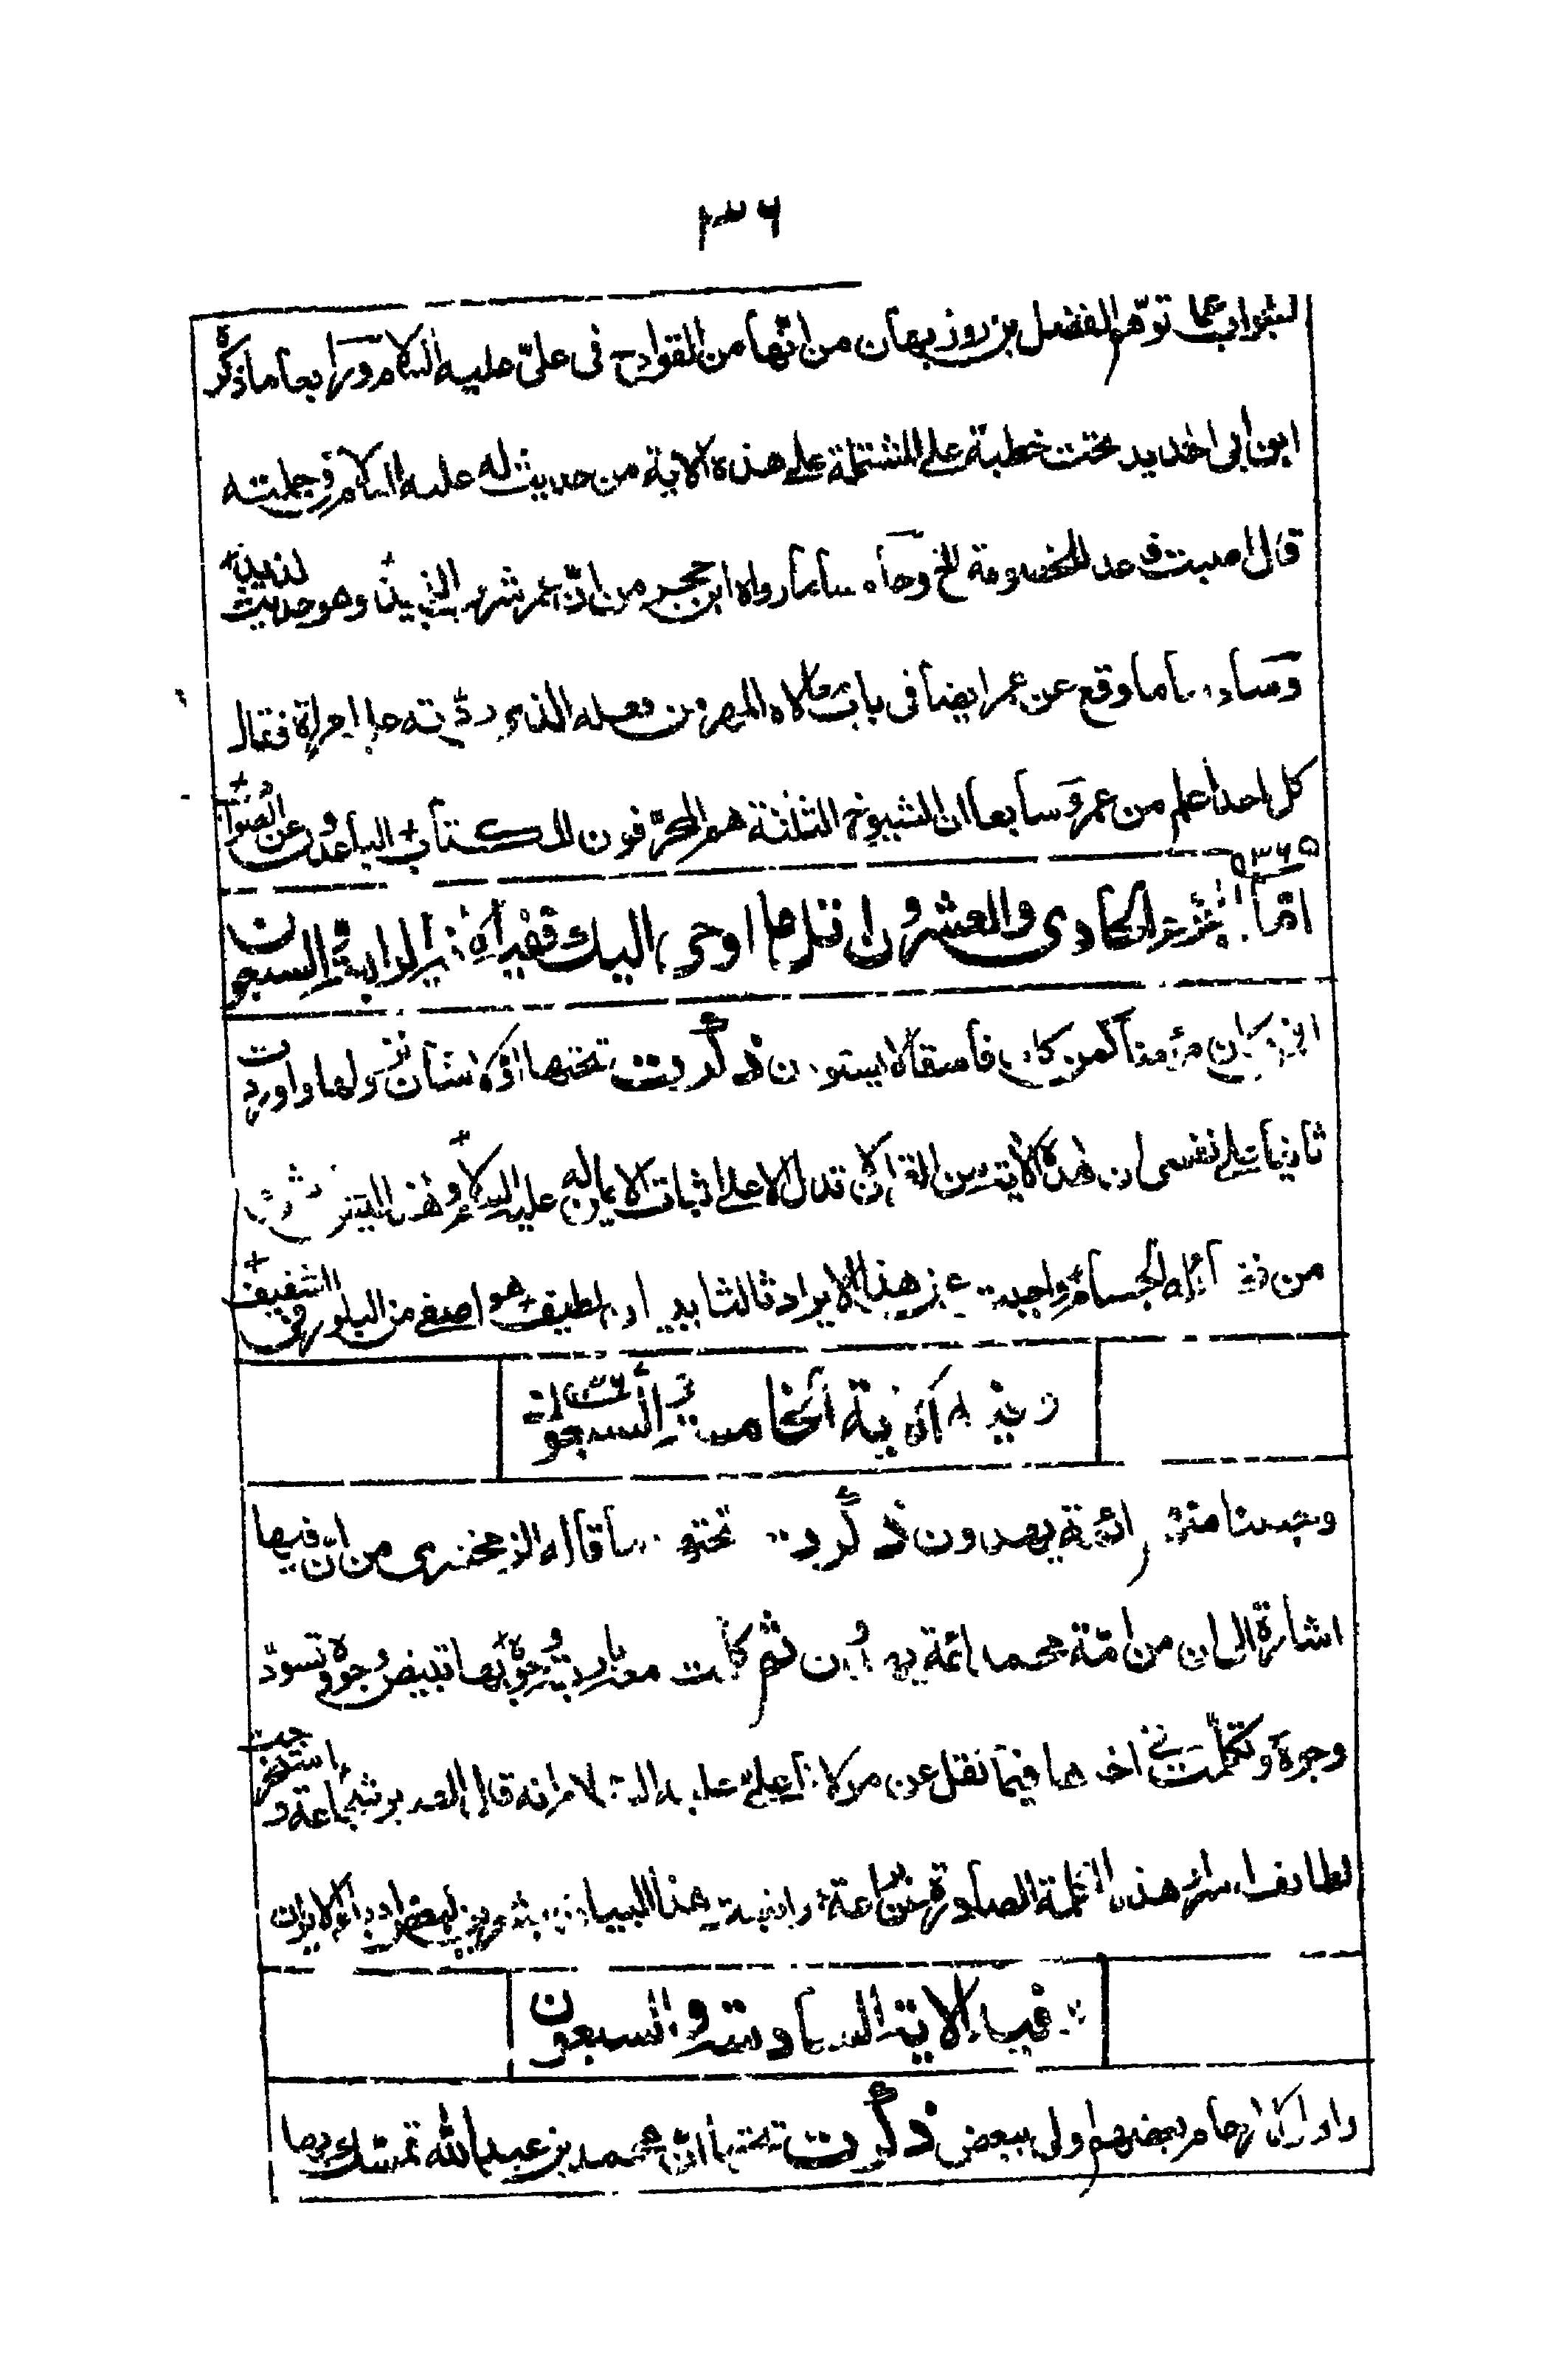 ٣٦
لثواب عما توهم الفضل بن روزبهان من انها من القوادح فى علىّ عليه السلام ورابعا ما ذكره
ابن ابى الحديد تحت خطبة على المشتملة على هذه الاية من حديث له عليه السلام وجملته
قال اصبت للخصومة الخ وخامسا ما رواه ابن حجر من انّ عمر شهر النبيذ وهو حديث
وسادسا ما وقع عن عمر ايضا فى باب مغالاة المهر من الذى ردته امراة فقال
كل احد اعلم من عمر وسابعا ان الشيوخ الثلثة هم المحرّفون للكتاب الباعدون عن الصواب
٣٦٥
امّا الحادى والعشرون اتل ما اوحى اليك ففيه الرابعة والسبعون
افمن كان مؤمنا كمن كان فاسقا لا يستوون ذكرت تحتها اوّلا شان نزولها واوردت
ثانيا على نفسى ان هذه الاية من القران تدل الا على اثبات الايمان له عليه السلام وهذا ليس
من الجسام واجبت عن هذا الايراد ثالثا لطيف هو اصفى من البلور فى الشفيف
وفيه الاية الخامسة والسبعون
وجعلنا منهم ائمة يهدون ذكرت تحتها ما قاله الزمخشرى من انّ فيها
اشارة الى ان من امّة محمد ائمة يهدون ثم كانت وجوه بها تبيض وجوه وتسودّ
وجوه وتكلّمت فى اخرها فيما نقل عن مولانا علىّ عليه السلام انه قال الصبر شجاعة واستخرجت
لطائف اسرار هذه الكلمة الصادرة هذا البيان لبعض ادباء الايران
فيها الاية السادسة والسبعون
واولو الارحام بعضهم اولى ببعض ذكرت تحتها انّ محمد بن عبد الله تمسّك بها